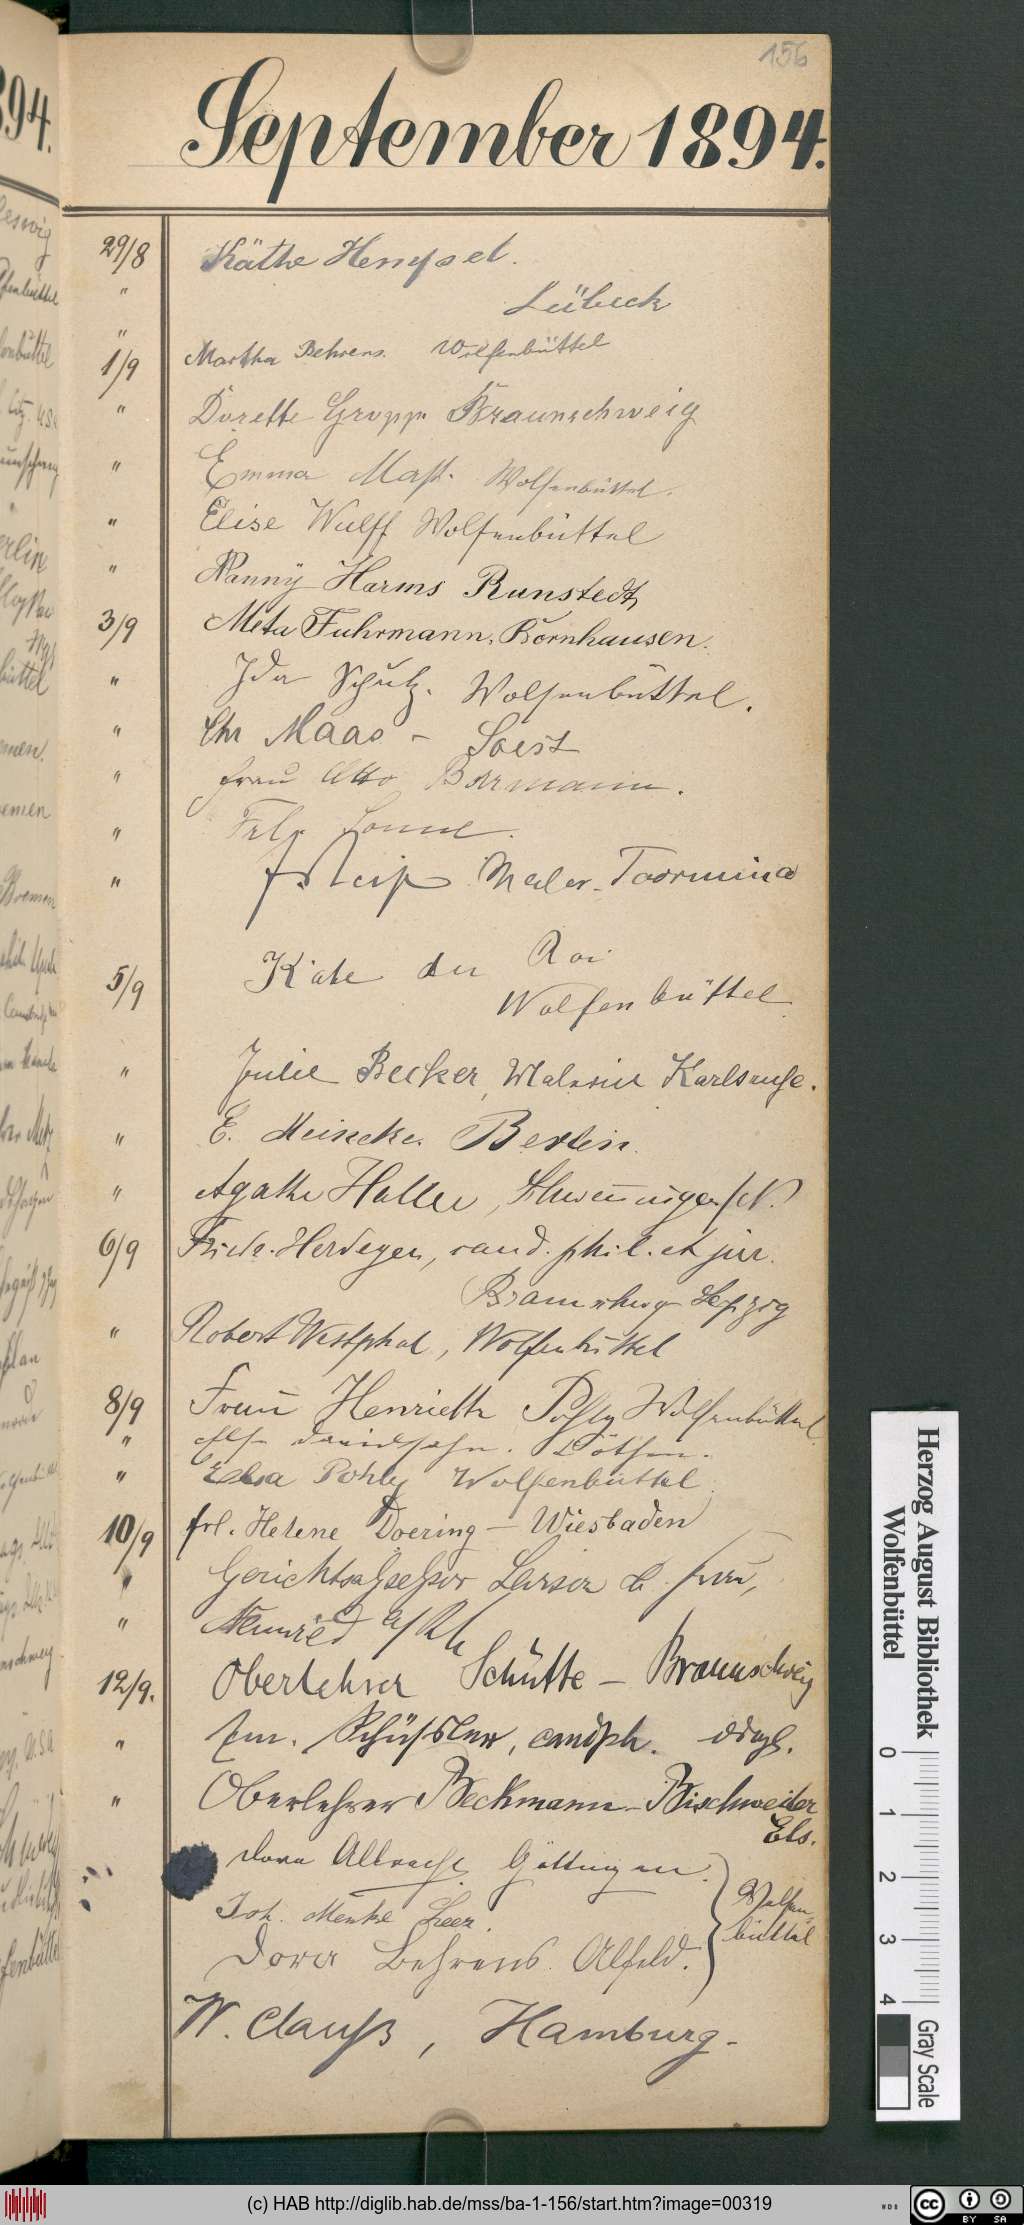 156
September 1894.
29/8 Käthe Hempel.
" Lübeck
"
1/9 Martha Behrens. Wolfenbüttel
" Dorette Grupp Braunschweig
" Emma Mast. Wolfenbüttel.
" Elise Wulff Wolfenbüttel
" Nanny Harms Runstedt
3/9 Meta Fuhrmann, Bornhausen.
" Ida Schulz. Wolfenbüttel.
" Chr Maas - Soest
" Frau Otto Bormann.
"
" Maler. Taormina
5/9 Käte du Roi
Wolfenbüttel
" Julie Becker, Malerin Karlsruhe.
" E. Meincke. Berlin.
" Agathe Haller, Schwenningen/N.
6/9 Friedr. Herdegen, cand. phil. et jur.
Braunschweig Leipzig
" Robert Westphal, Wolfenbüttel
8/9 Frau Henriette Pohly Wolfenbüttel.
" Davidsohn. Cöthen.
" Elsa Pohly Wolfenbüttel.
10/9 frl. Helene Doering - Wiesbaden
" Gerichtsassessor u. Frau,
" Neuwied a/Rh
12/9. Oberlehrer Schütte - Braunschweig
" Em. Schüssler,
" Oberlehrer Beckmann - Bischweiler
Els.
Dora Albrecht, Göttingen.
Joh. Menke Leer.
Wolfen
büttel
Dora Behrens. Alfeld.
W. Clauß, Hamburg.
Herzog August Bibliothek
Wolfenbüttel
0 1 2 3 4
Gray Scale
(c) HAB http://diglib.hab.de/mss/ba-1-156/start.htm?image=00319
WDB
cc BY SA